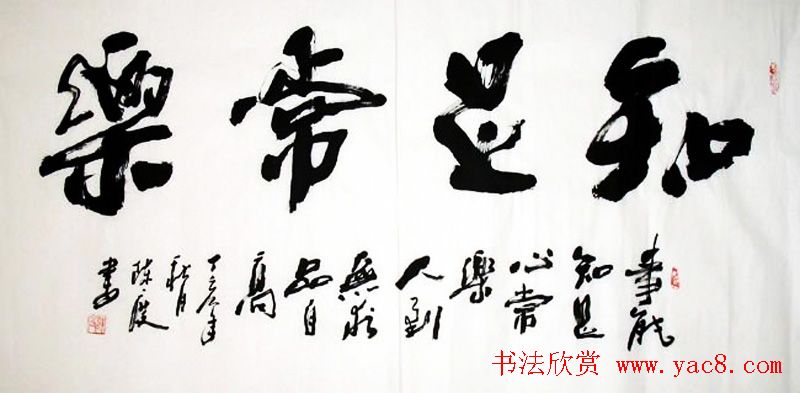 知足常樂
事能
知足
心常
樂
人到
無求
品自
高
丁亥年
秋月
書
书法欣赏 www.yac8.com